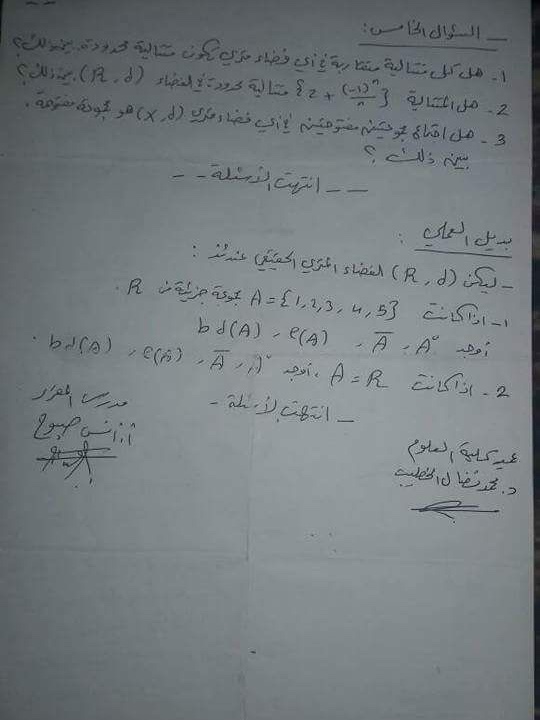 - السؤال الخامس :
1- هل كل متتالية متقاربة في أي فضاء متري تكون متتالية محدودة. بين ذلك؟
2- هل المتتالية {2 + (-1)^n/n} متتالية محدودة في الفضاء (R, d). بين ذلك؟
3- هل اجتماع مجموعتين مفتوحتين في أي فضاء متري (X, d) هو مجموعة مفتوحة.
بين ذلك ؟
- - انتهت الأسئلة - -
بديل العملي :
- ليكن (R, d) الفضاء المتري الحقيقي عندئذ :
1- اذا كانت A = {1, 2, 3, 4, 5} مجموعة جزئية من R.
أوجد A° , Ā , e(A) , bd(A)
2- اذا كانت A = R ، أوجد A° , Ā , e(A) , bd(A) .
- انتهت الأسئلة -
مدرس المقرر
أ. أنس صبوح
عميد كلية العلوم
د. محمد نضال الخطيب